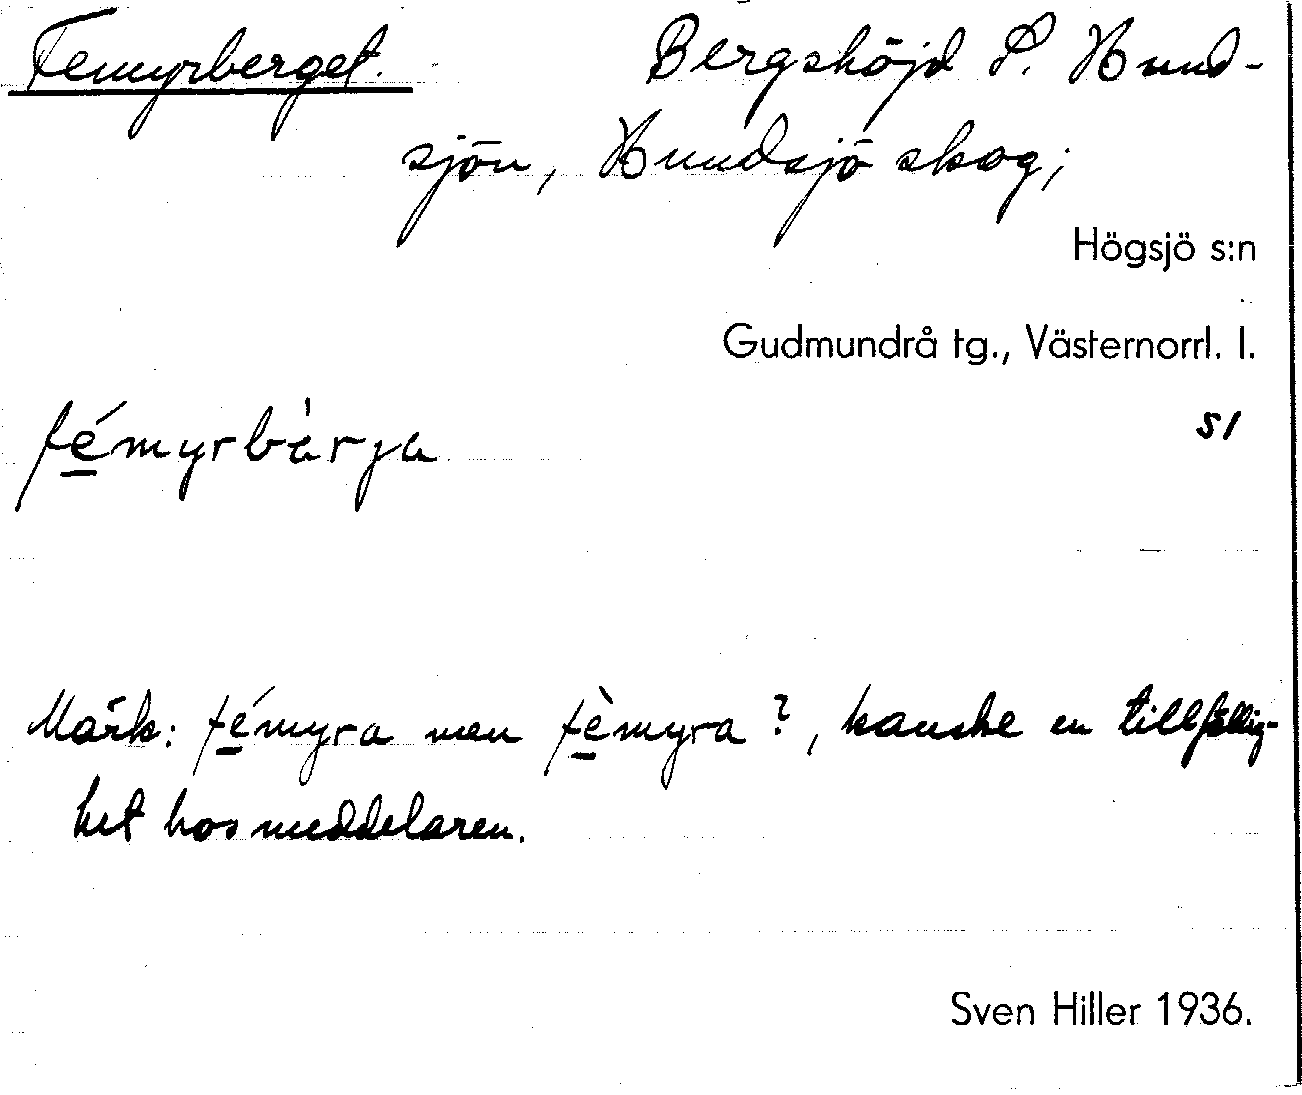 Femyrberget. Bergshöjd S. Hund-
sjön, Hundsjö skog;
Högsjö s:n
Gudmundrå tg., Västernorrl. l.
51
fé̲myrbàrja
Märk: fé̲myra men fè̲myra?, kanske en tillfällig-
het hos meddelaren.
Sven Hiller 1936.